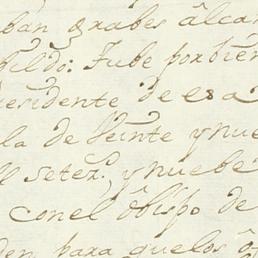 ban graves âlcan
bildo: tube por bien
residente de esa
la de Veinte y nue
ll setez.s y nuebe
con el ôbispo de
den para que los ô